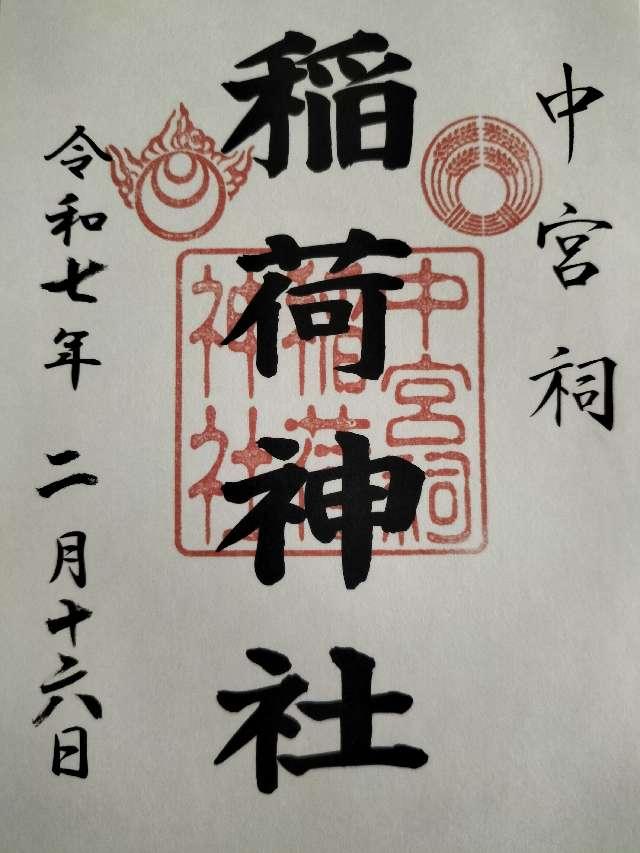 中宮祠
稲荷神社
中宮祠
稲荷
神社
令和七年 二月十六日